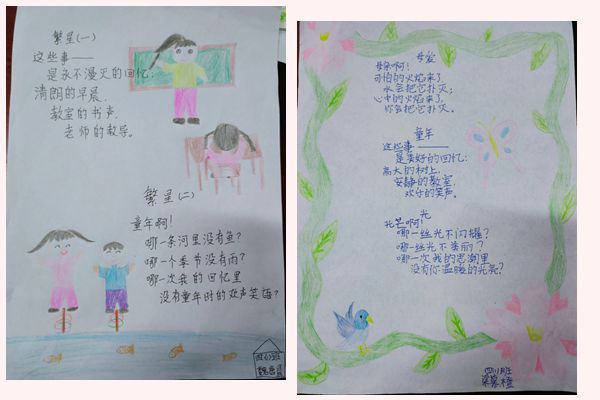 繁星(一)
这些事——
是永不漫灭的回忆:
清朗的早晨,
教室的书声,
老师的教导。
繁星(二)
童年啊!
哪一条河里没有鱼?
哪一个季节没有雨?
哪一次我的回忆里
没有童年时的欢声笑语?
四(1)班
母爱
母亲啊!
可怕的火焰来了,
水会把它扑灭;
心中的火焰来了,
你会把它扑灭。
童年
这些事——
是美好的回忆:
高大的树上,
安静的教室,
欢乐的笑声。
光
光芒啊!
哪一丝光不闪耀?
哪一丝光不美丽?
哪一次我的思潮里
没有你温暖的光亮?
四(1)班